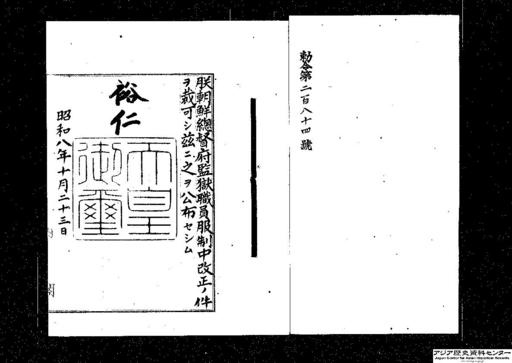 勅令第二百八十四號
朕朝鮮總督府監獄職員服制中改正ノ件
ヲ裁可シ茲ニ之ヲ公布セシム
裕仁
天皇御璽
昭和八年十月二十三日
内閣
アジア歴史資料センター
Japan Center for Asian Historical Records